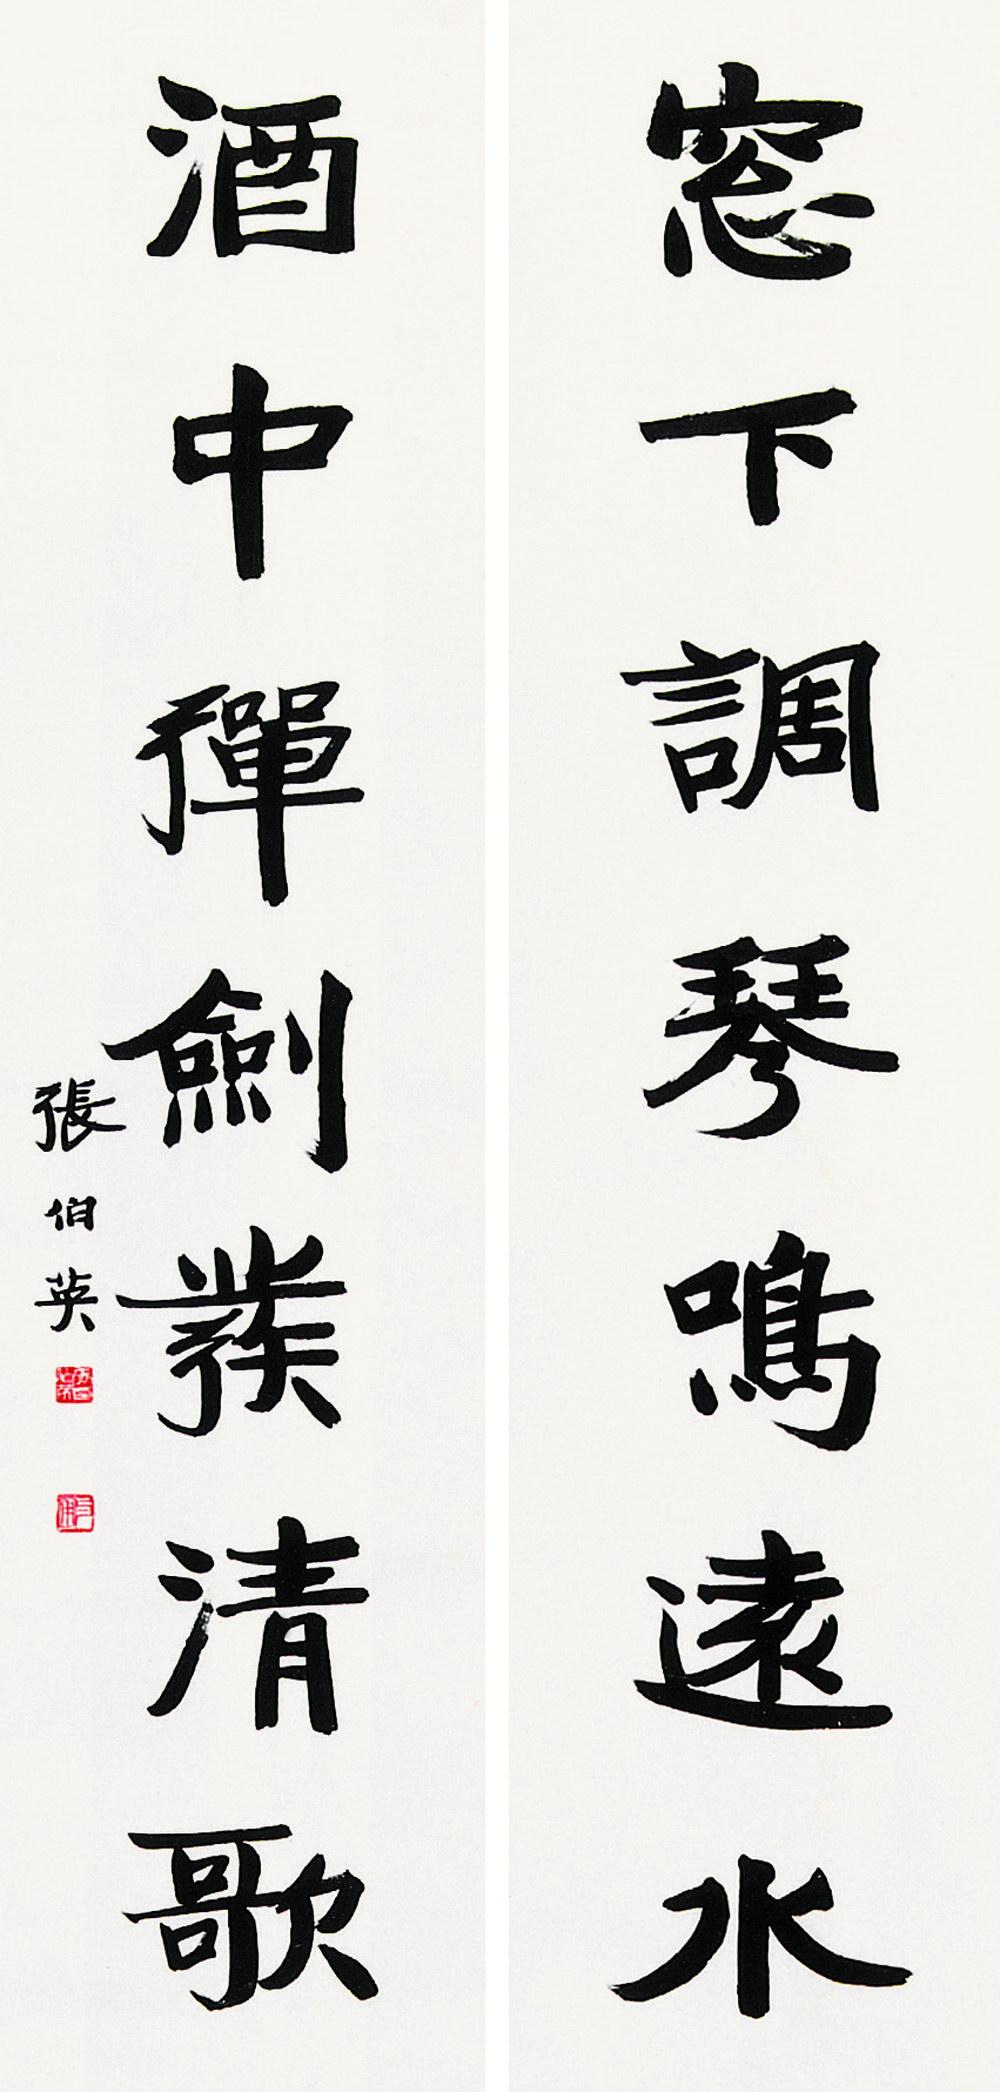 窓下調琴鳴遠水
酒中彈劍發清歌
張伯英